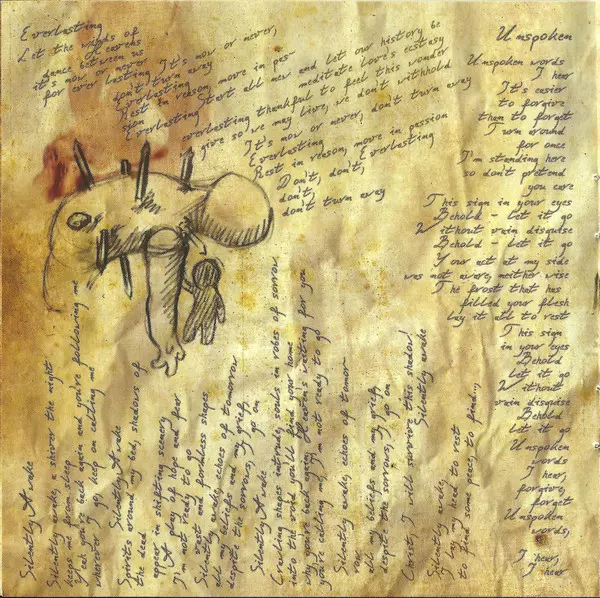 Everlasting
Let the winds of
the heavens
dance between us
it's now or never
for ever lasting It's now or never,
don't turn away
Everlasting
Rest in reason, move in pas-
sion
Everlasting Start all new and let our history be
meditate love's ecstasy
everlasting thankful to feel this wonder
give so we may live, we don't withhold
It's now or never, don't turn away
Everlasting
Rest in reason, move in passion
Don't, don't, Everlasting
don't,
don't turn away
Unspoken
Unspoken words
I hear
It's easier
to forgive
than to forget
Turn around
for once
I'm standing here
so don't pretend
you care
This sign in your eyes
Behold - let it go
Without vain disguise
Behold - let it go
Your act at my side
was not aware, neither wise
The frost that has
filled your flesh
lay it all to rest
This sign
in your eyes
Behold
let it go
Without
vain disguise
Behold
let it go
Unspoken
words
I hear,
forgive,
forget
Unspoken
words,
I hear,
I hear
Silently Awake
Silently awake, a shiver the night
keeps me from sleep
Yeah you're back again and you're following me
wherever I go, keep on calling me
Silently Awake
Spirits around my bed, shadows of
the dead
appear in shifting scenery
A play of hope and fear
I'm not ready to go
Ghost and formless shapes
Silently awake, echoes of tomorrow
all my beliefs and my grief,
despite the sorrows, I go on
Silently Awake
Crawling shapes intrude, souls in robes of sorrow
into the world you'll find your home
why you're back again, Heaven's waiting for you
you're calling me, I'm not ready to go
Silently awake, echoes of tomor-
row
all my beliefs and my grief,
despite the sorrows, I go on
Christ, I will survive this shadow!
Silently awake
Silently awake
I lay my head to rest
to find some peace, to find...